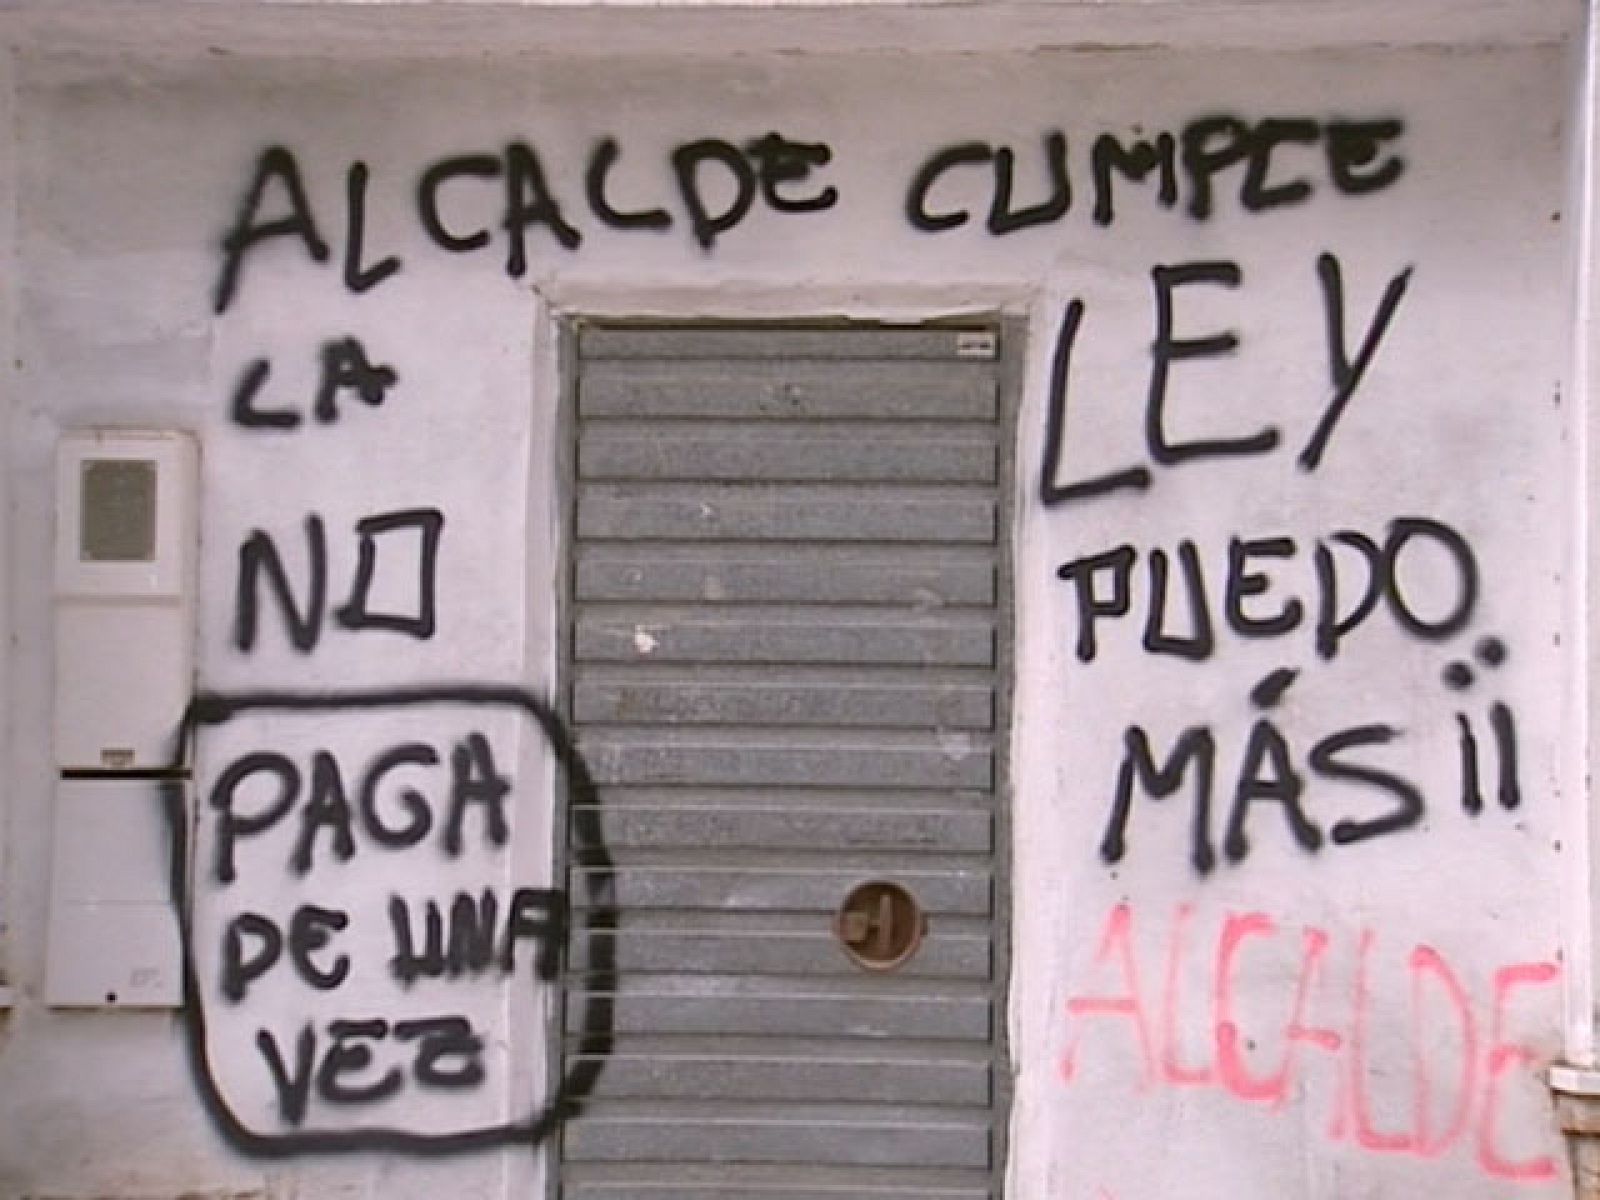 ALCALDE CUMPLE
LA LEY
NO PUEDO
MÁS ¡¡
PAGA
DE UNA
VEZ
ALCALDE